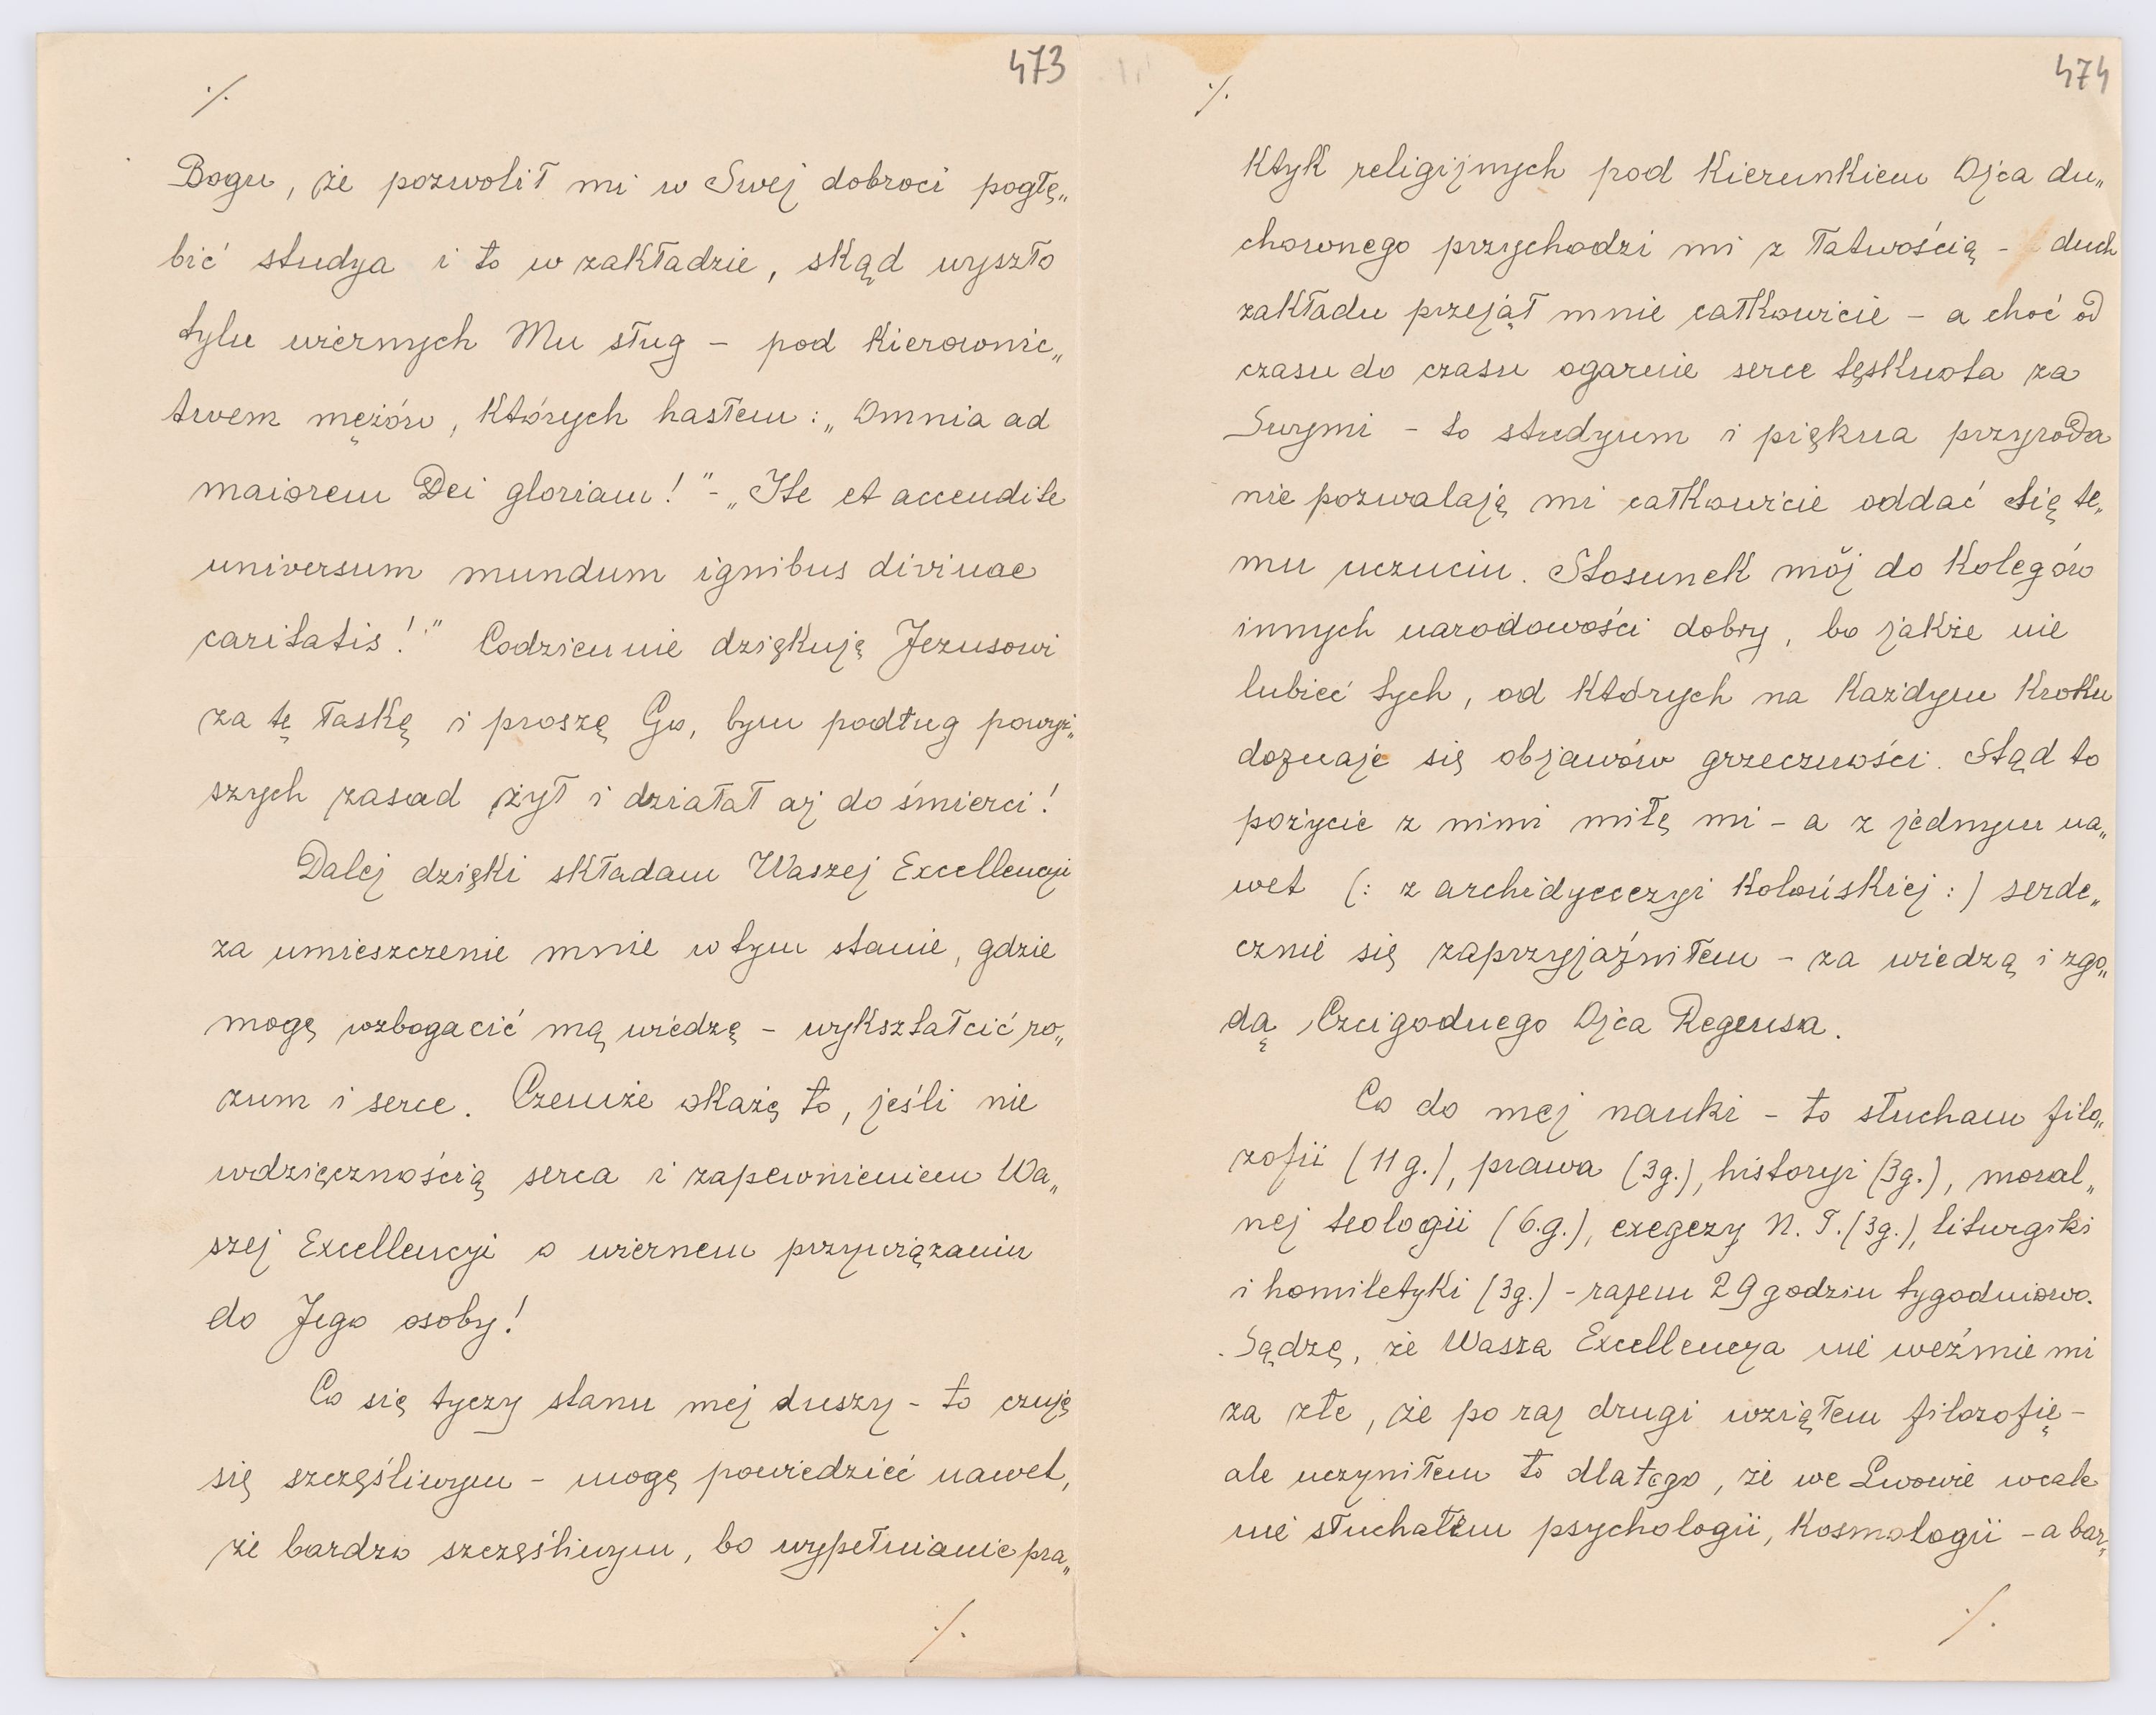 473
./.
Bogu, że pozwolił mi w Swej dobroci pogłę„
bić studya i to w zakładzie, skąd wyszło
tylu wiernych Mu sług – pod kierownic„
twem mężów, których hasłem: „Omnia ad
maiorem Dei gloriam!" - „Ite et accendite
universum mundum ignibus divinae
caritatis!" Codziennie dziękuję Jezusowi
za tę łaskę i proszę Go, bym podług powyż„
szych zasad żył i działał aż do śmierci!
Dalej dzięki składam Waszej Excellencyi
za umieszczenie mnie w tym stanie, gdzie
mogę wzbogacić mą wiedzę – wykształcić ro„
zum i serce. Czemże okażę to, jeśli nie
wdzięcznością serca i zapewnieniem Wa„
szej Excellencyi o wiernem przywiązaniu
do Jego osoby!
Co się tyczy stanu mej duszy – to czuję
się szczęśliwym – mogę powiedzieć nawet,
że bardzo szczęśliwym, bo wypełnianie pra„
./.
474
./.
ktyk religijnych pod kierunkiem Ojca du„
chownego przychodzi mi z łatwością – duch
zakładu przejął mnie całkowicie – a choć od
czasu do czasu ogarnie serce tęsknota za
Swymi – to studyum i piękna przyroda
nie pozwalają mi całkowicie oddać się te„
mu uczuciu. Stosunek mój do kolegów
innych narodowości dobry, bo jakże nie
lubieć tych, od których na każdym kroku
doznaje się objawów grzeczności. Stąd to
pożycie z nimi miłę mi – a z jednym na„
wet (: z archidyecezyi kolońskiej :) serde„
cznie się zaprzyjaźniłem – za wiedzą i zgo„
dą Czcigodnego Ojca Regensa.
Co do mej nauki – to słucham filo„
zofii (11 g.), prawa (3g.), historyi (3g.), moral„
nej teologii (6.g.), exegezy N. T. (3g.), liturgiki
i homiletyki (3g.) – razem 29 godzin tygodniowo.
Sądzę, że Wasza Excellencya nie weźmie mi
za złe, że po raz drugi wziąłem filozofię –
ale uczyniłem to dlatego, że we Lwowie wcale
nie słuchałem psychologii, kosmologii – a bar„
./.